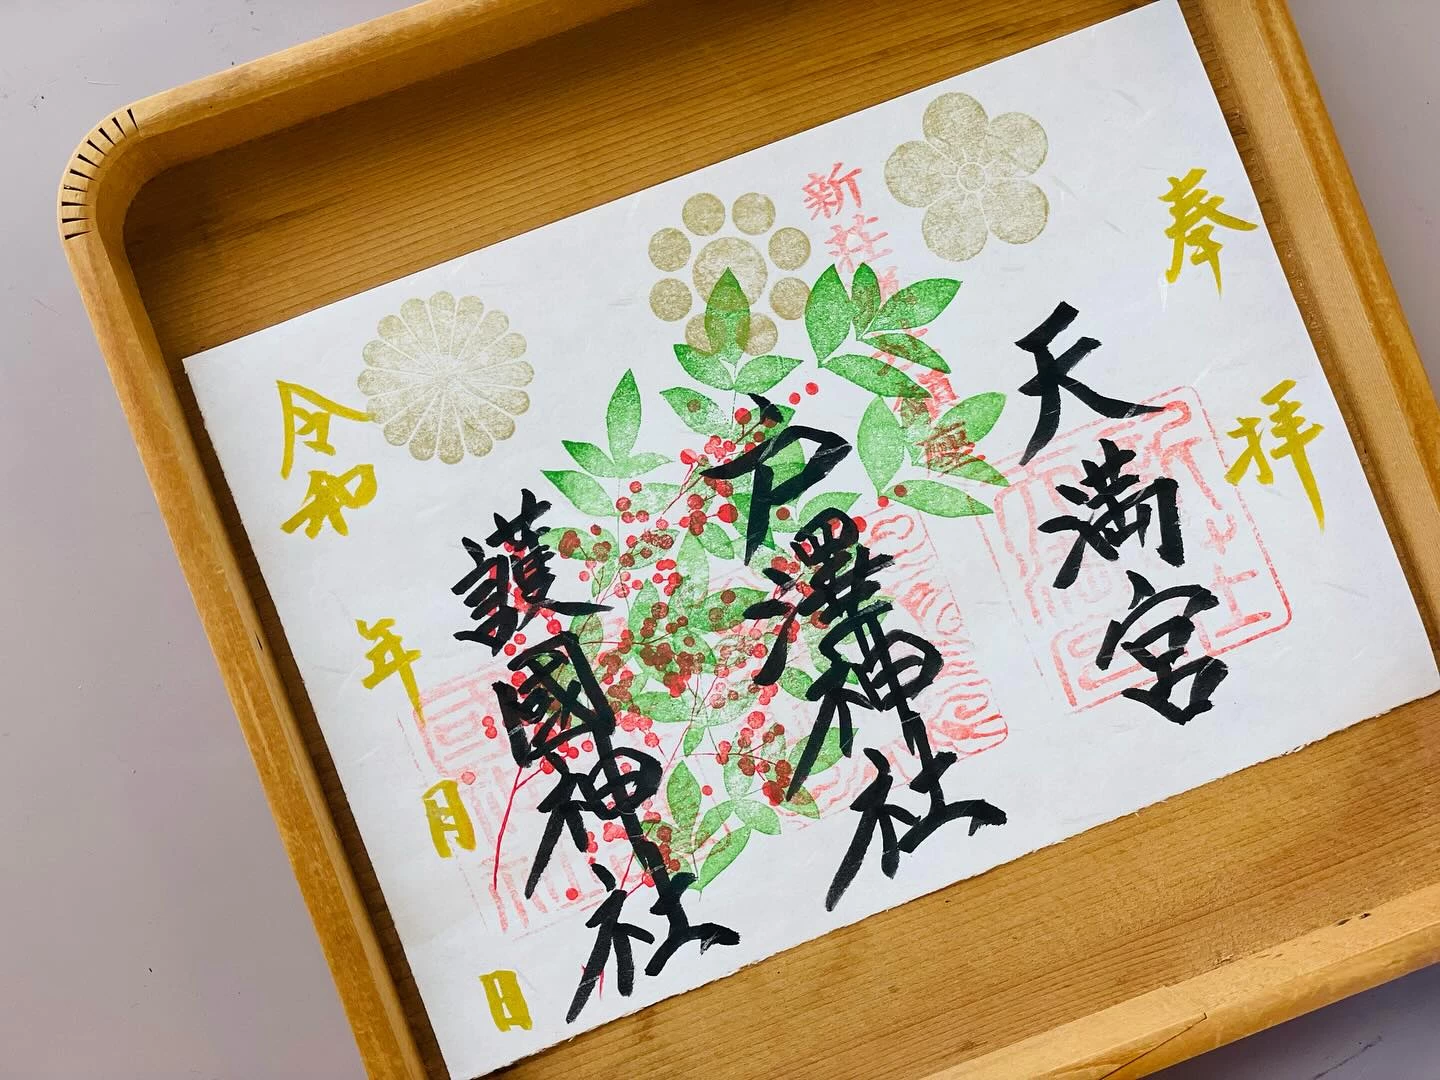 奉拝
天満宮
戸澤神社
護國神社
令和 年 月 日